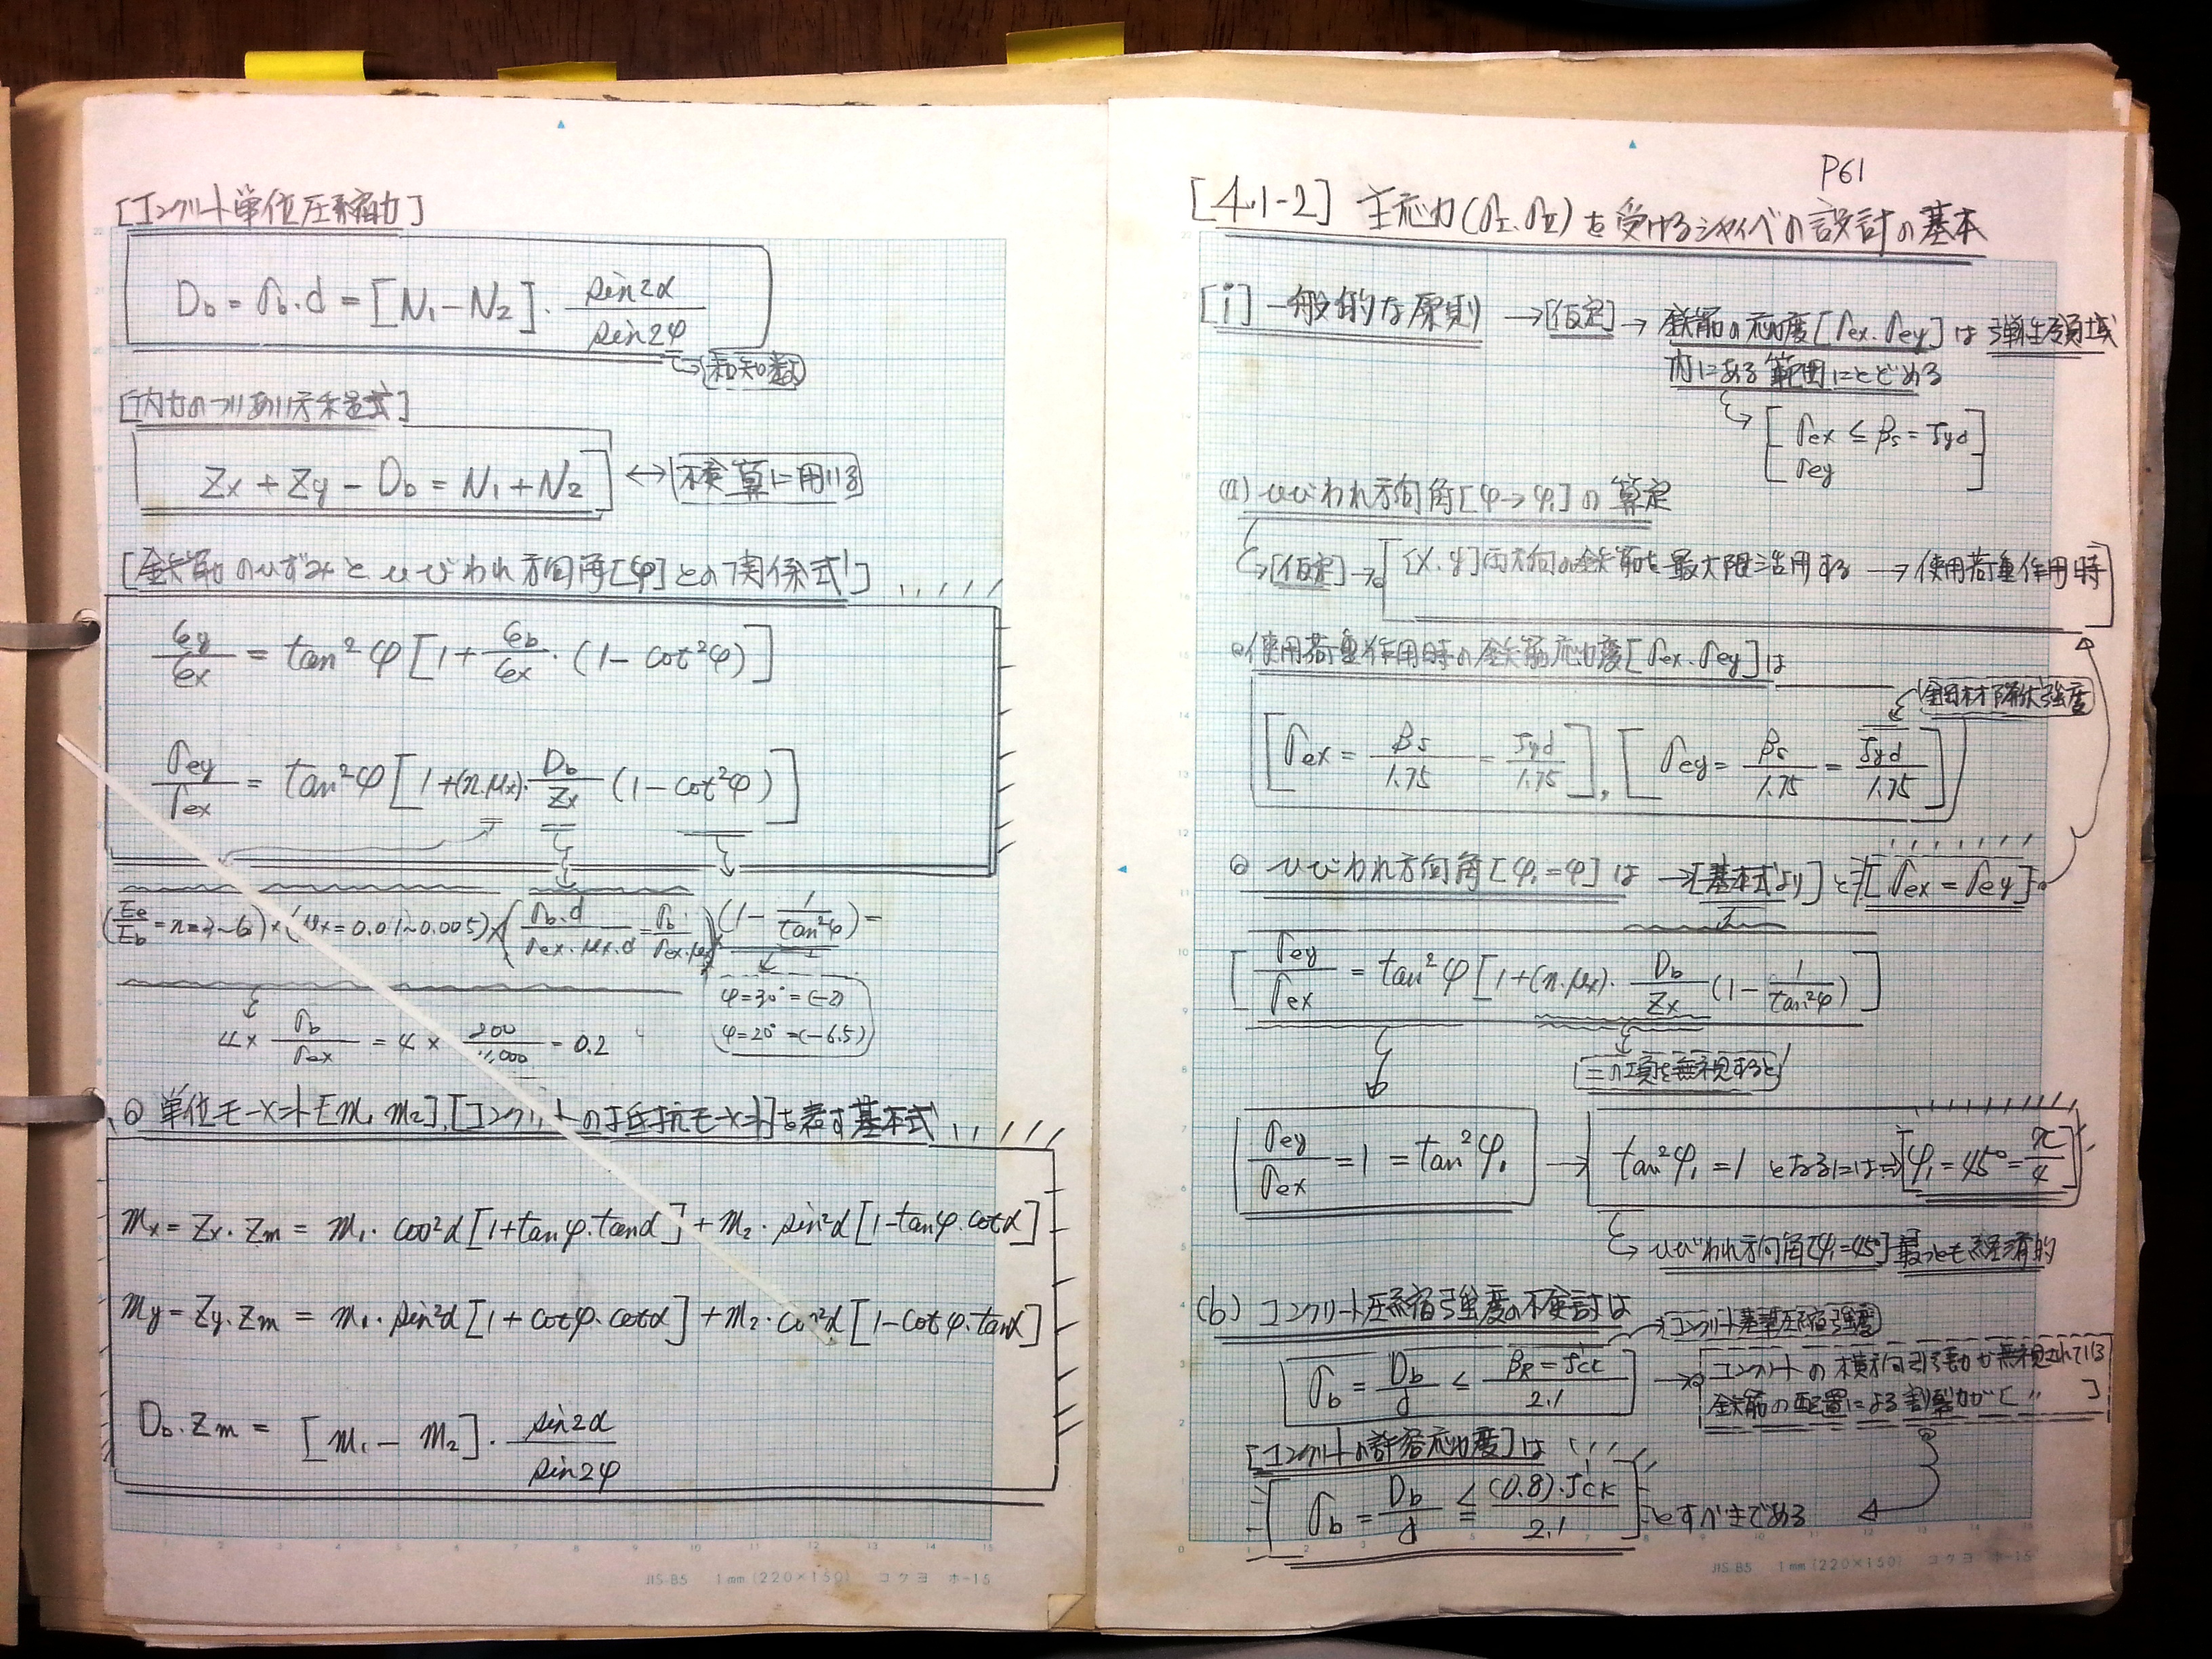 [コンクリート単位圧縮力]
Db = σb・d = [N1 − N2]・sin2α / sin2φ
→(未知数)
[内力のつりあい方程式]
Zx + Zy − Db = N1 + N2 ↔ [検算に用いる]
[鉄筋のひずみとひびわれ方向角[φ]との関係式]
εy/εx = tan²φ [1 + εb/εx・(1 − cot²φ)]
σey/σex = tan²φ [1 + (n.μx)・Db/Zx (1 − cot²φ)]
(Ee/Eb = n = ～6) × (μx = 0.01～0.005) × (σb.d / σex.μx.d = σb / σex.μx) × (1 − 1/tan²φ) =
φ=30° = (−2)
φ=20° = (−6.5)
4 × σb/σex = 4 × 200/4,000 = 0.2
◎ 単位モーメント[m1 m2],[コンクリートの抵抗モーメント]を表す基本式
mx = Zx・Zm = m1・cos²α [1 + tanφ.tanα] + m2・sin²α [1 − tanφ.cotα]
my = Zy.Zm = m1・sin²α [1 + cotφ.cotα] + m2・cos²α [1 − cotφ.tanα]
Db.Zm = [m1 − m2]・sin2α / sin2φ
P61
[4.1-2] 主応力(σI.σII)を受けるシャイベの設計の基本
[i] 一般的な原則 → [仮定] → 鉄筋の応力度[σex.σey]は弾性領域
内にある範囲にとどめる
[σex ≦ βs = fyd
σey]
(a) ひびわれ方向角[φ→φ1]の算定
→[仮定]→[[x.y]両方向の鉄筋を最大限活用する → 使用荷重作用時]
◎使用荷重作用時の鉄筋応力度[σex.σey]は
[鋼材降伏強度]
[σex = βs/1.75 = fyd/1.75], [σey = βs/1.75 = fyd/1.75]
◎ ひびわれ方向角[φ1=φ]は →[基本式より]と[σex = σey]
[σey/σex = tan²φ [1 + (n.μx)・Db/Zx (1 − 1/tan²φ)]]
この項を無視すると
σey/σex = 1 = tan²φ1 → tan²φ1 = 1 となるには⇒[φ1 = 45° = π/4]
→ ひびわれ方向角[φ1=45°]最っとも経済的
(b) コンクリート圧縮強度の検討は
→[コンクリート基準圧縮強度]
[σb = Db/d ≦ βR = fck / 2.1] → コンクリートの横方向引張力が無視されている
鉄筋の配置による割裂力が[ 〃 ]
[コンクリートの許容応力度]は
[σb = Db/d ≦ (0.8).fck / 2.1] とすべきである
JIS B5 1mm(220×150) コクヨ ホ-15
JIS B5 1mm(220×150) コクヨ ホ-15